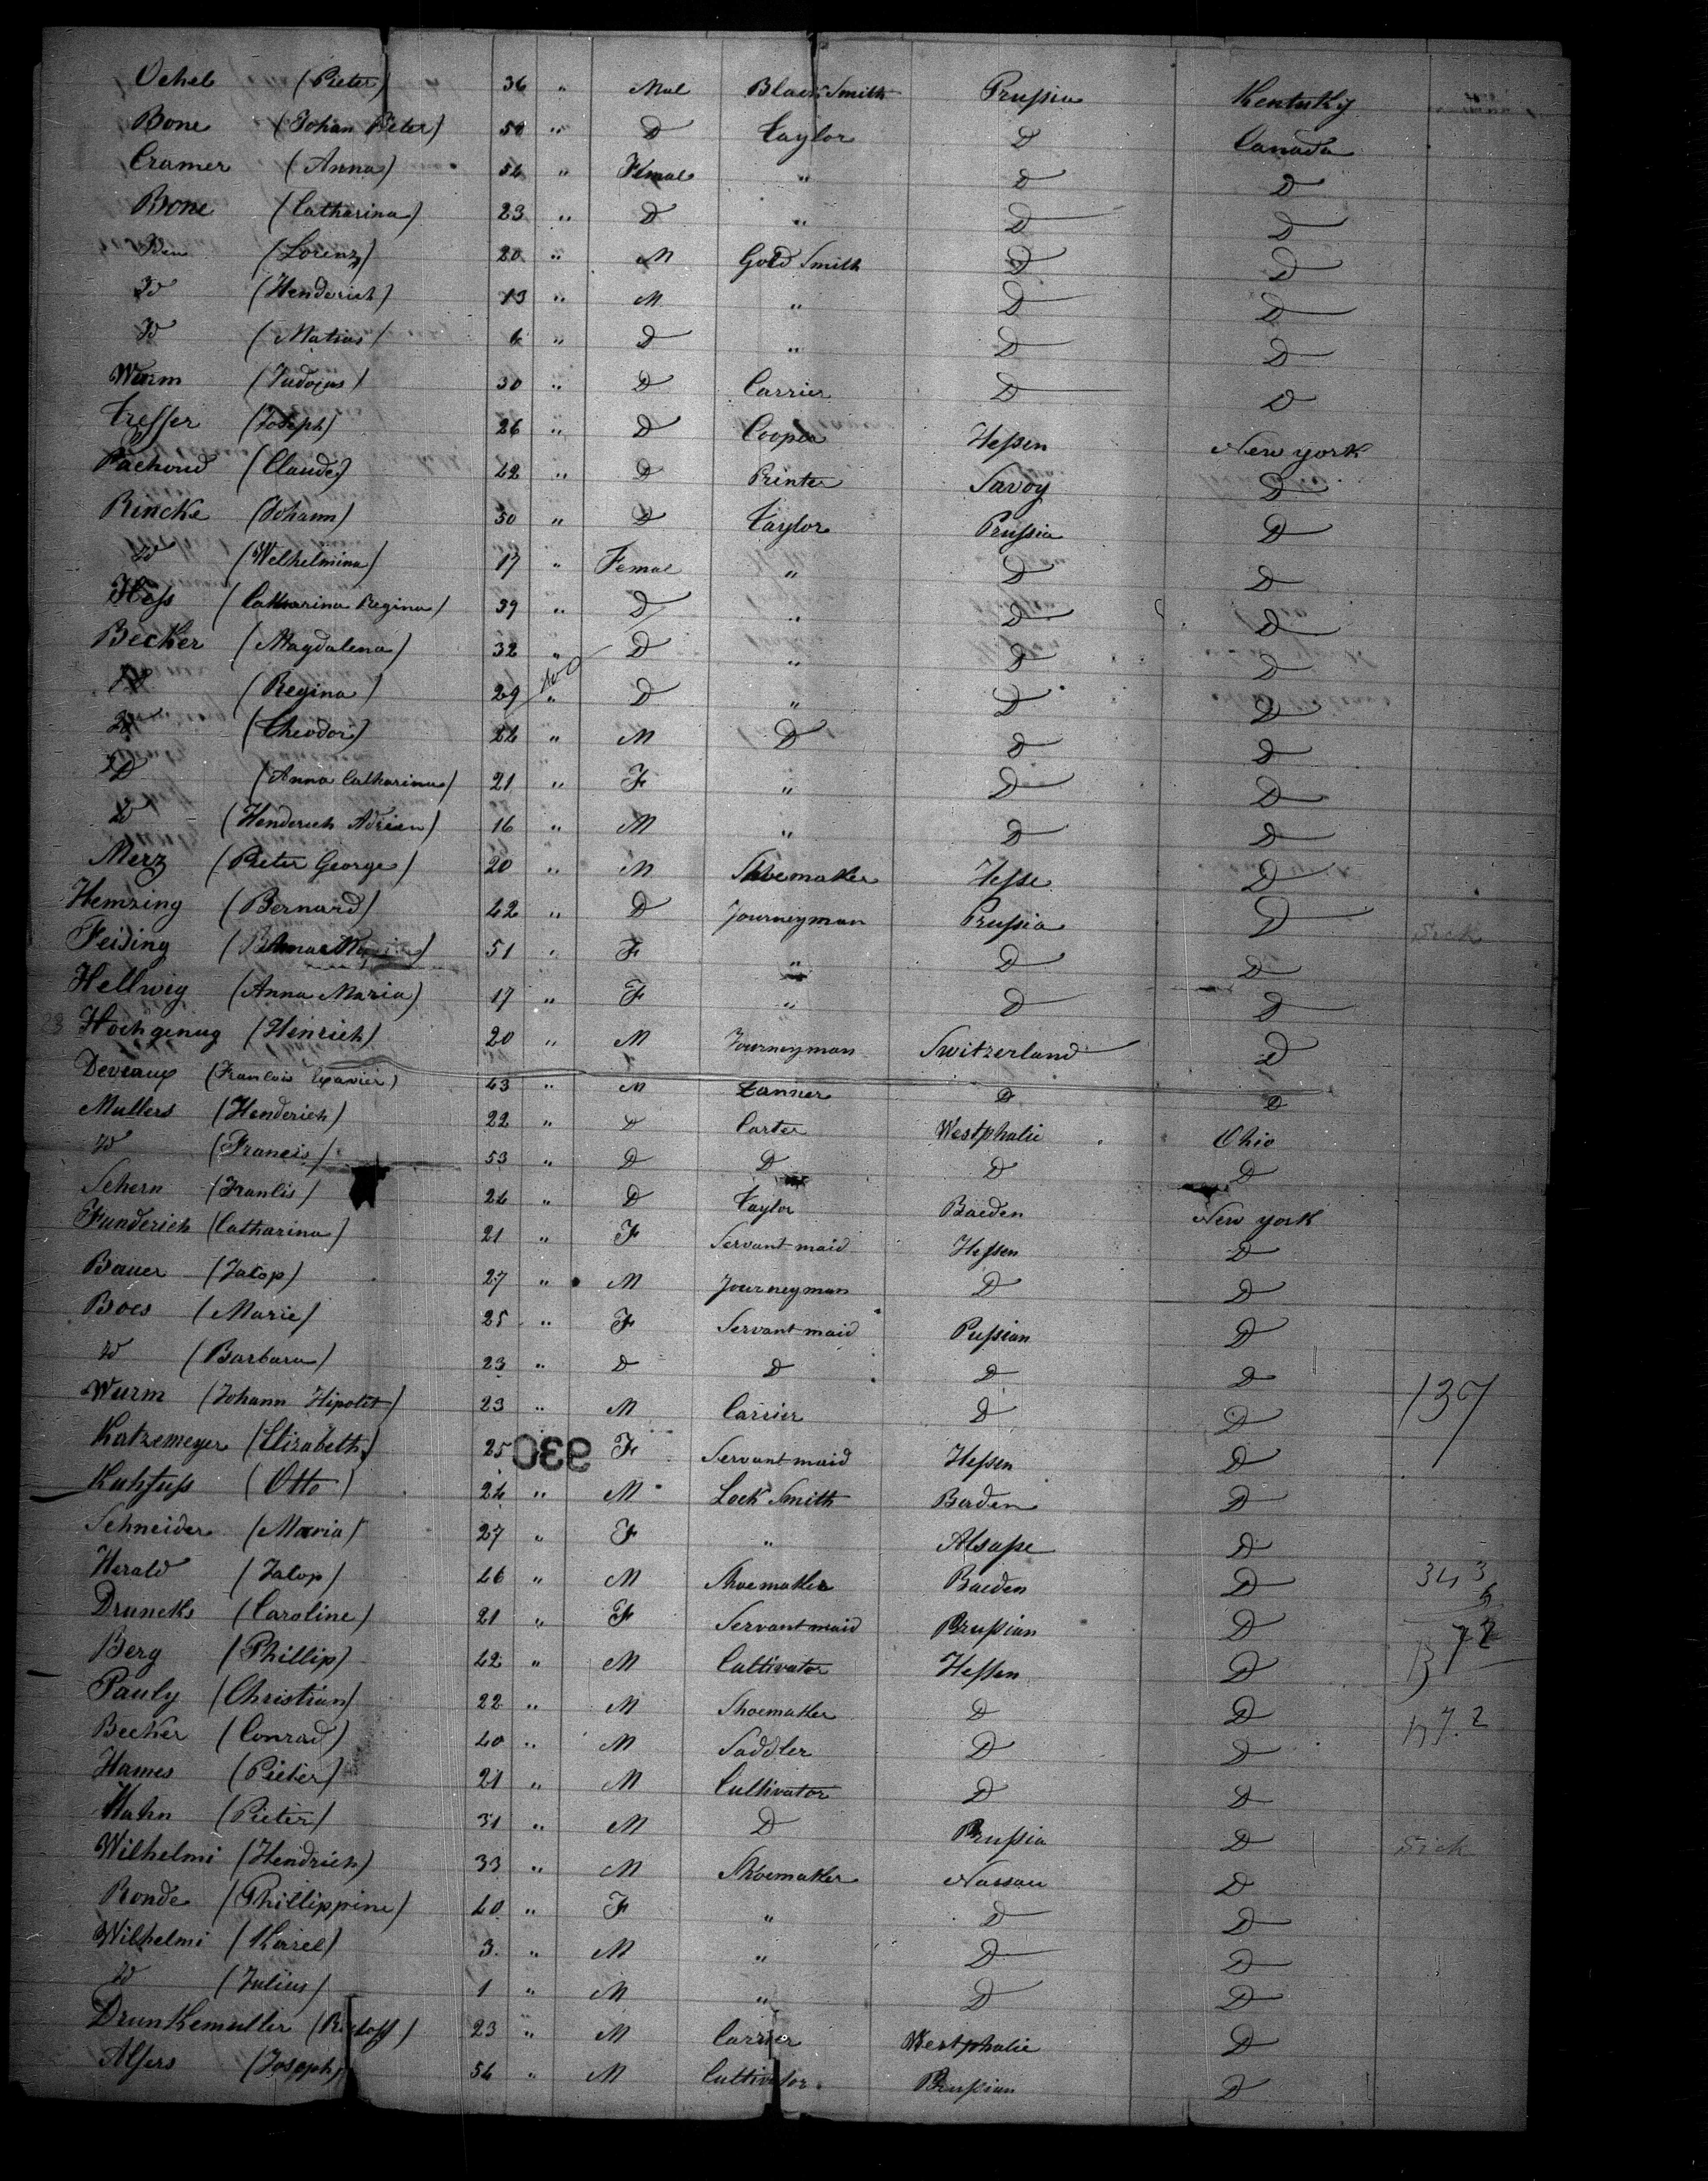 Oehel (Pieter) 36 " Mal Black Smith Prussia Kentuky
Bone (Johan Pieter) 50 " D Taylor D Canada
Cramer (Anna) 54 " Femal " D D
Bone (Catharina) 23 " D " D D
(Lorenz) 20 " M Gold Smith D D
Id (Henderich) 13 " M " D D
Id (Matias) 6 " D " D D
Wurm 30 " D Carrier D D
Tresser (Joseph) 26 " D Cooper Hessen New york
Pachoud (Claude) 42 " D Printer Savoy D
Rincke (Johann) 50 " D Taylor Prussia D
Id (Welhelmina) 17 " Femal " D D
Hess (Catharina Regina) 39 " D " D D
Becker (Magdalena) 32 " D " D D
Id (Regina) 29 " D " D D
Id (Theodor) 24 " M D D D
Id (Anna Catharina) 21 " F " D D
Id (Henderich Adrien) 16 " M " D D
Merz (Pieter George) 20 " M Shoemaker Hesse D
Hemzing (Bernard) 42 " D Journeyman Prussia D
Feising 51 " F " D D Sick
Hellwig (Anna Maria) 17 " F " D D
23 Hochgenug (Heinrich) 20 " M Journeyman Switzerland D
Deveaux (Francois Xavier) 43 " M Tanner D D
Mullers (Henderich) 22 " D Carter Westphalie Ohio
Id (Francis) 53 " D D D D
Schern (Franlis) 24 " D Taylor Baeden New york
Funderich (Catharina) 21 " F Servant maid Hessen D
Bauer (Jacop) 27 " M Journeyman D D
Boes (Marie) 25 " F Servant maid Pussian D
Id (Barbara) 23 " D D D D
Wurm (Johann Hipolit) 23 " M Carrier D D 137
Katzemeyer (Elizabeth) 25 930 F Servant maid Hessen D
Kahfuss (Otto) 24 " M Lock Smith Baden D
Schneider (Maria) 27 " F " Alsasse D
Herald (Jacop) 46 " M Shoemaker Baeden D 343
Druncks (Caroline) 21 " F Servant maid Prussian D
Berg (Phillip) 42 " M Cultivator Hessen D
Pauly (Christian) 22 " M Shoemaker D D
Becker (Conrad) 40 " M Saddler D D
Hames (Pieter) 21 " M Cultivator D D
Hahn (Pieter) 31 " M D Prussia D Sick
Wilhelmi (Hendrich) 33 " M Shoemaker Nassau D
Ronde (Phillippine) 40 " F " D D
Wilhelmi (Karel) 3 " M " D D
Id (Julius) 1 " M " D D
Drunkemuller (Rudolff) 23 " M Carrier Westphalie D
Alfers (Joseph) 54 " M Cultivator Prussian D